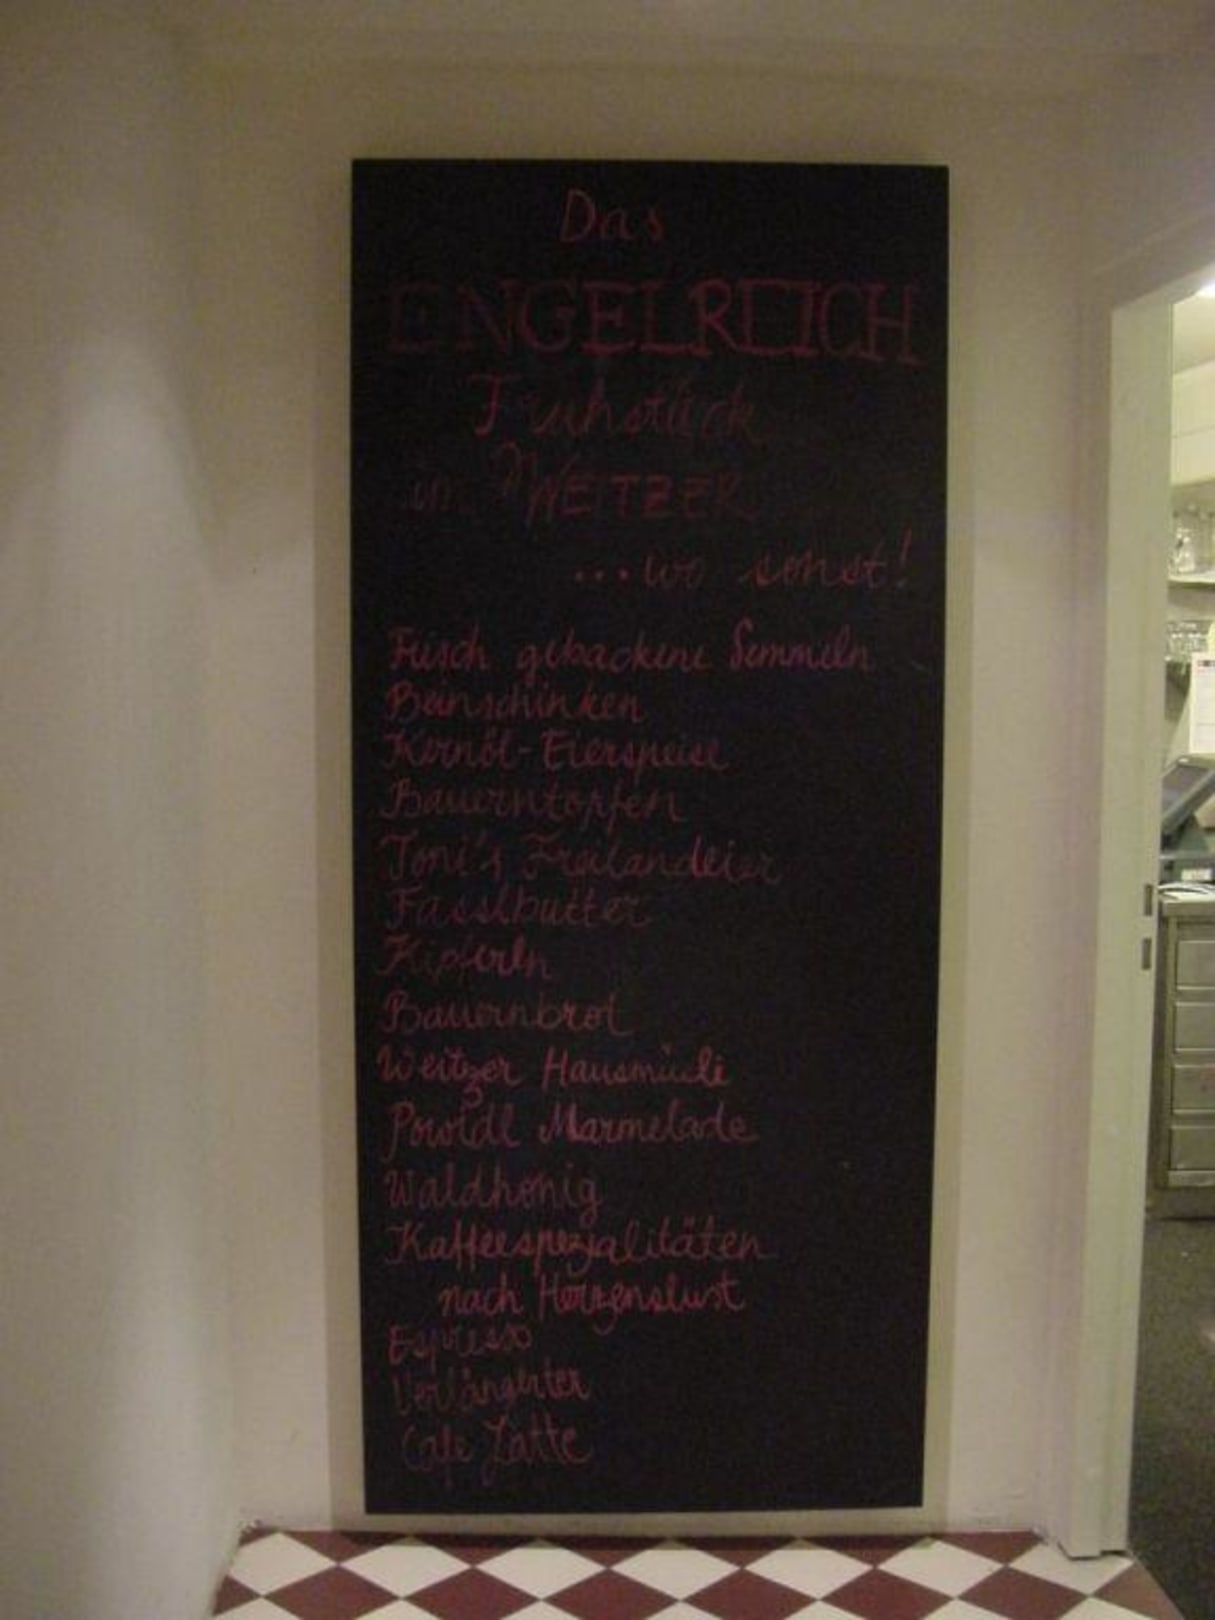 Das
ENGELREICH
Frühstück
im WEITZER
...wo sonst!
Frisch gebackene Semmeln
Beinschinken
Kernöl-Eierspeise
Bauerntopfen
Toni's Freilandeier
Fasslbutter
Kipferln
Bauernbrot
Weitzer Hausmüsli
Powidl Marmelade
Waldhonig
Kaffeespezialitäten
nach Herzenslust
Espresso
Verlängerter
Cafe Latte